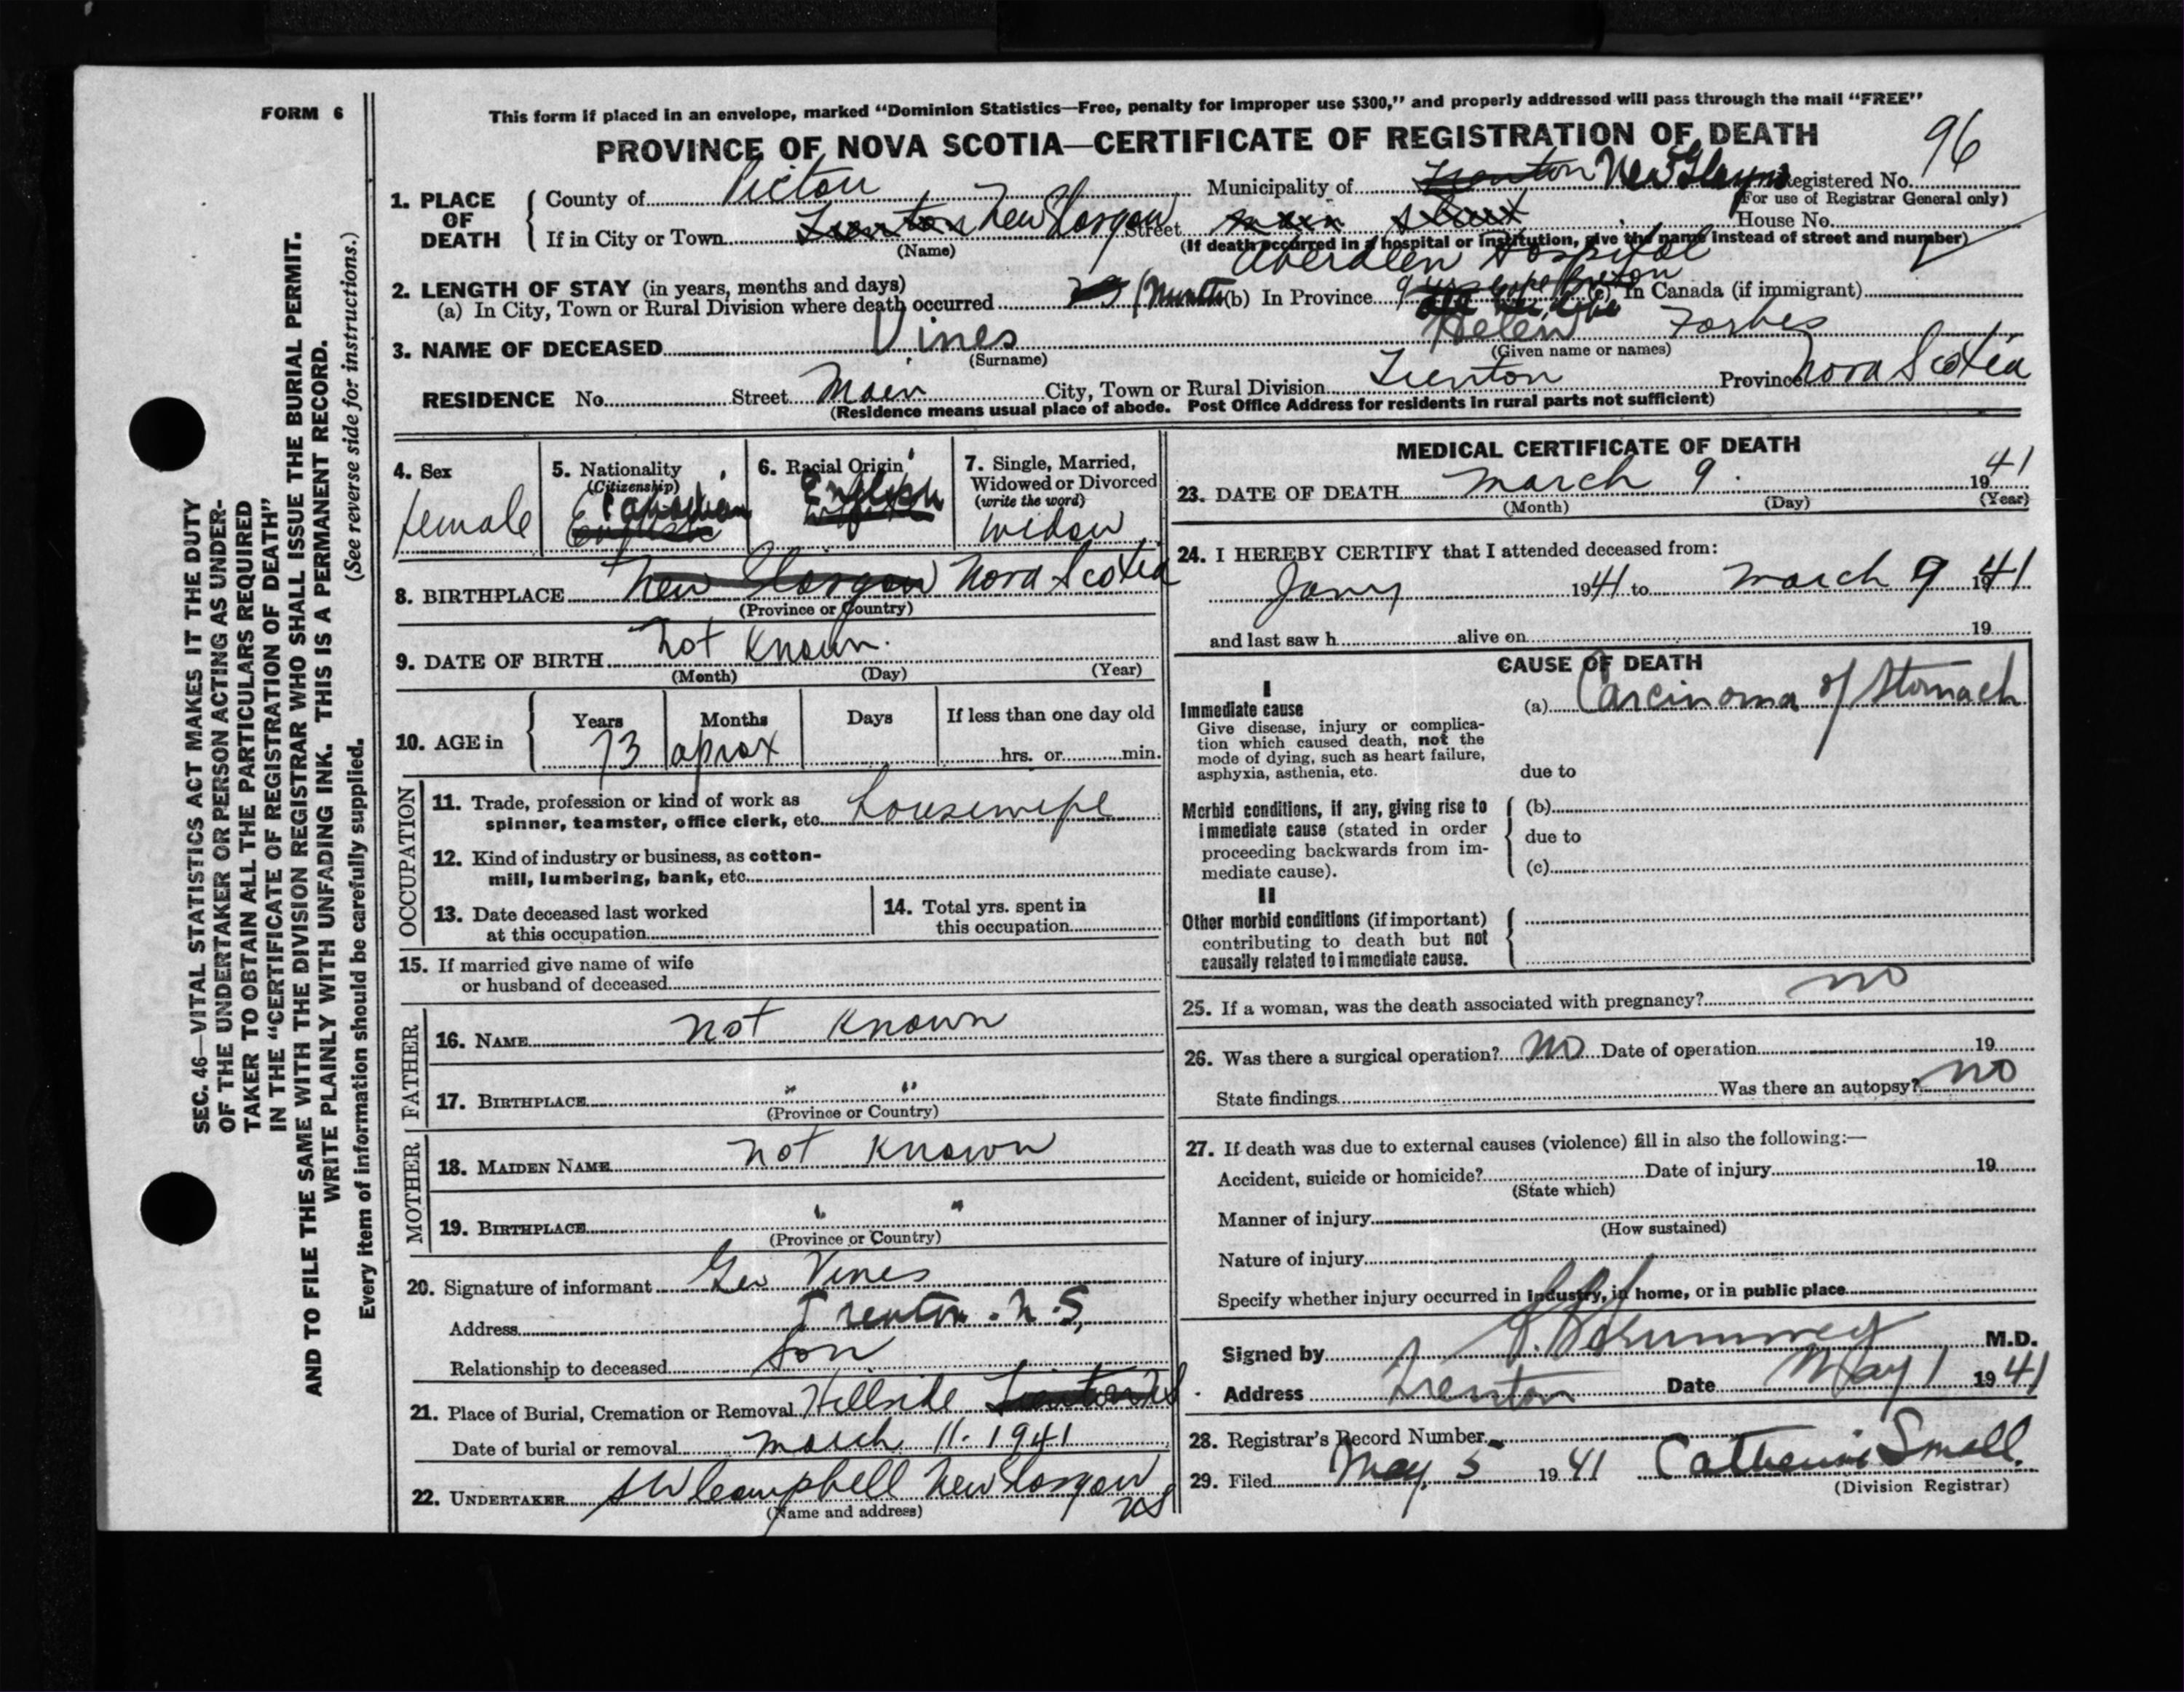 FORM 6
This form if placed in an envelope, marked “Dominion Statistics—Free, penalty for improper use $300,” and properly addressed will pass through the mail “FREE”
PROVINCE OF NOVA SCOTIA—CERTIFICATE OF REGISTRATION OF DEATH
96
1. PLACE OF DEATH
County of Pictou Municipality of Trenton New Glasgow Registered No.
(For use of Registrar General only)
If in City or Town Trenton New Glasgow Street Main Street House No.
(Name) (If death occurred in a hospital or institution, give the name instead of street and number)
Aberdeen Hospital
2. LENGTH OF STAY (in years, months and days)
(a) In City, Town or Rural Division where death occurred 1 Month (b) In Province Cape Breton (c) In Canada (if immigrant)
3. NAME OF DECEASED Vines Helen Forbes
(Surname) (Given name or names)
RESIDENCE No. Street Main City, Town or Rural Division Trenton Province Nova Scotia
(Residence means usual place of abode. Post Office Address for residents in rural parts not sufficient)
4. Sex
female
5. Nationality
(Citizenship)
Canadian
English
6. Racial Origin
English
7. Single, Married,
Widowed or Divorced
(write the word)
Widow
8. BIRTHPLACE New Glasgow Nova Scotia
(Province or Country)
9. DATE OF BIRTH not Known.
(Month) (Day) (Year)
10. AGE in
Years Months Days If less than one day old
73 aprox hrs. or min.
OCCUPATION
11. Trade, profession or kind of work as
spinner, teamster, office clerk, etc. housewife
12. Kind of industry or business, as cotton-
mill, lumbering, bank, etc.
13. Date deceased last worked
at this occupation
14. Total yrs. spent in
this occupation
15. If married give name of wife
or husband of deceased
FATHER
16. NAME not Known
17. BIRTHPLACE " "
(Province or Country)
MOTHER
18. MAIDEN NAME not Known
19. BIRTHPLACE " "
(Province or Country)
20. Signature of informant Geo Vines
Address Trenton . N.S,
Relationship to deceased Son
21. Place of Burial, Cremation or Removal Hillside Trenton NS
Date of burial or removal March 11. 1941
22. UNDERTAKER SW Campbell New Glasgow
NS
(Name and address)
MEDICAL CERTIFICATE OF DEATH
23. DATE OF DEATH March 9. 1941
(Month) (Day) (Year)
24. I HEREBY CERTIFY that I attended deceased from:
Jany 1941 to March 9 1941
and last saw h alive on 19
CAUSE OF DEATH
I
Immediate cause
Give disease, injury or complica-
tion which caused death, not the
mode of dying, such as heart failure,
asphyxia, asthenia, etc.
(a) Carcinoma of Stomach
due to
Morbid conditions, if any, giving rise to
immediate cause (stated in order
proceeding backwards from im-
mediate cause).
(b)
due to
(c)
II
Other morbid conditions (if important)
contributing to death but not
causally related to immediate cause.
25. If a woman, was the death associated with pregnancy? no
26. Was there a surgical operation? No Date of operation 19
State findings Was there an autopsy? no
27. If death was due to external causes (violence) fill in also the following:—
Accident, suicide or homicide? Date of injury 19
(State which)
Manner of injury
(How sustained)
Nature of injury
Specify whether injury occurred in industry, in home, or in public place
Signed by M.D.
Address Trenton Date May 1 1941
28. Registrar's Record Number
29. Filed May 5 1941 Catherine Small.
(Division Registrar)
SEC. 46—VITAL STATISTICS ACT MAKES IT THE DUTY
OF THE UNDERTAKER OR PERSON ACTING AS UNDER-
TAKER TO OBTAIN ALL THE PARTICULARS REQUIRED
IN THE “CERTIFICATE OF REGISTRATION OF DEATH”
AND TO FILE THE SAME WITH THE DIVISION REGISTRAR WHO SHALL ISSUE THE BURIAL PERMIT.
WRITE PLAINLY WITH UNFADING INK. THIS IS A PERMANENT RECORD.
Every item of information should be carefully supplied. (See reverse side for instructions.)